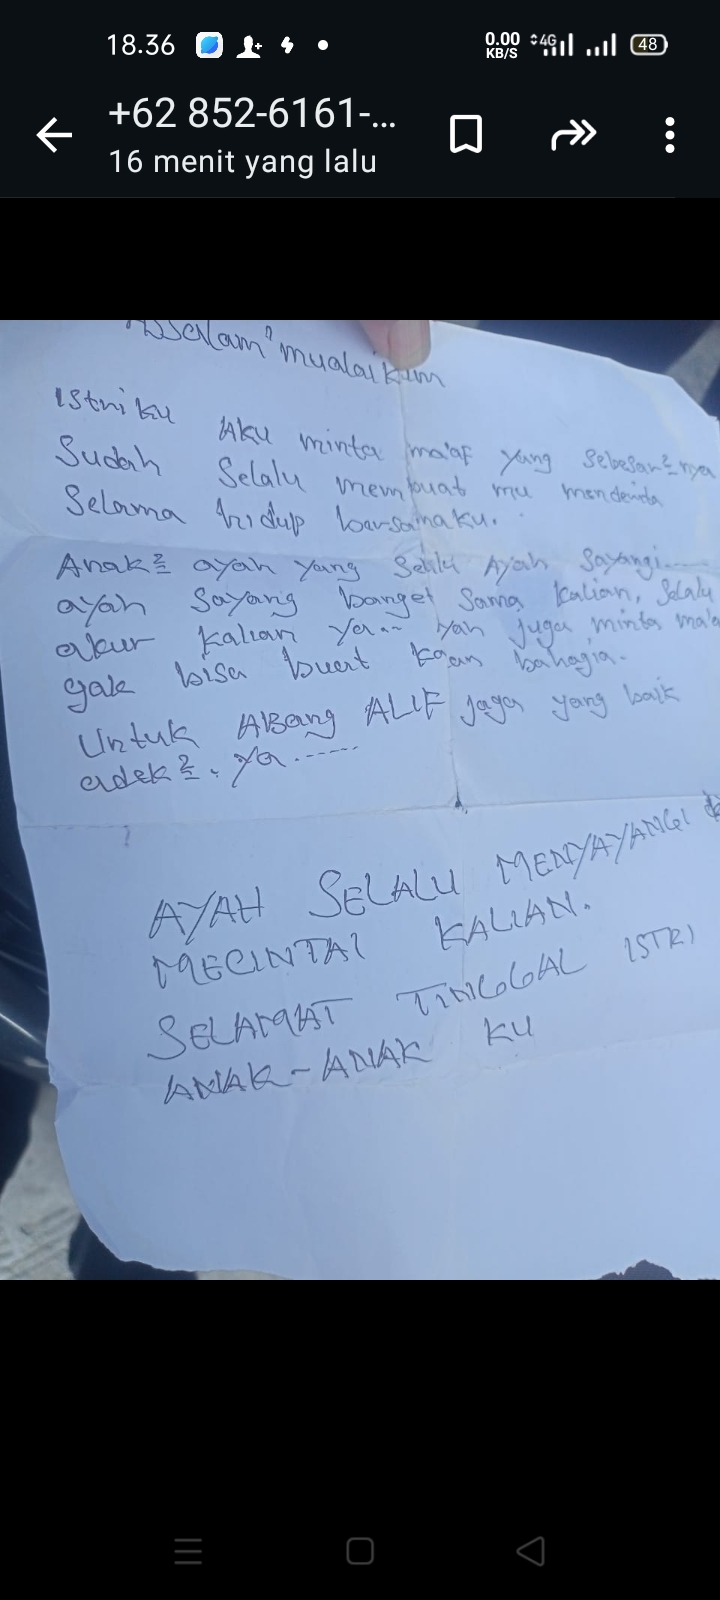 18.36
0.00 KB/S 4G 48
+62 852-6161-...
16 menit yang lalu
"Assalam" mualaikum
Istriku Aku minta ma'af yang sebesar²nya
Sudah Selalu membuat mu menderita
Selama hidup bersamaku.
Anak² ayah yang Selalu Ayah Sayangi......
ayah Sayang banget Sama kalian, Selalu
akur kalian ya... yah juga minta
gak bisa buat kalian bahagia.
Untuk ABang ALIF jaga yang baik
adek². ya.......
AYAH SELALU MENYAYANGI
MECINTAI KALIAN.
SELAMAT TINGGAL ISTRI
ANAK-ANAK KU